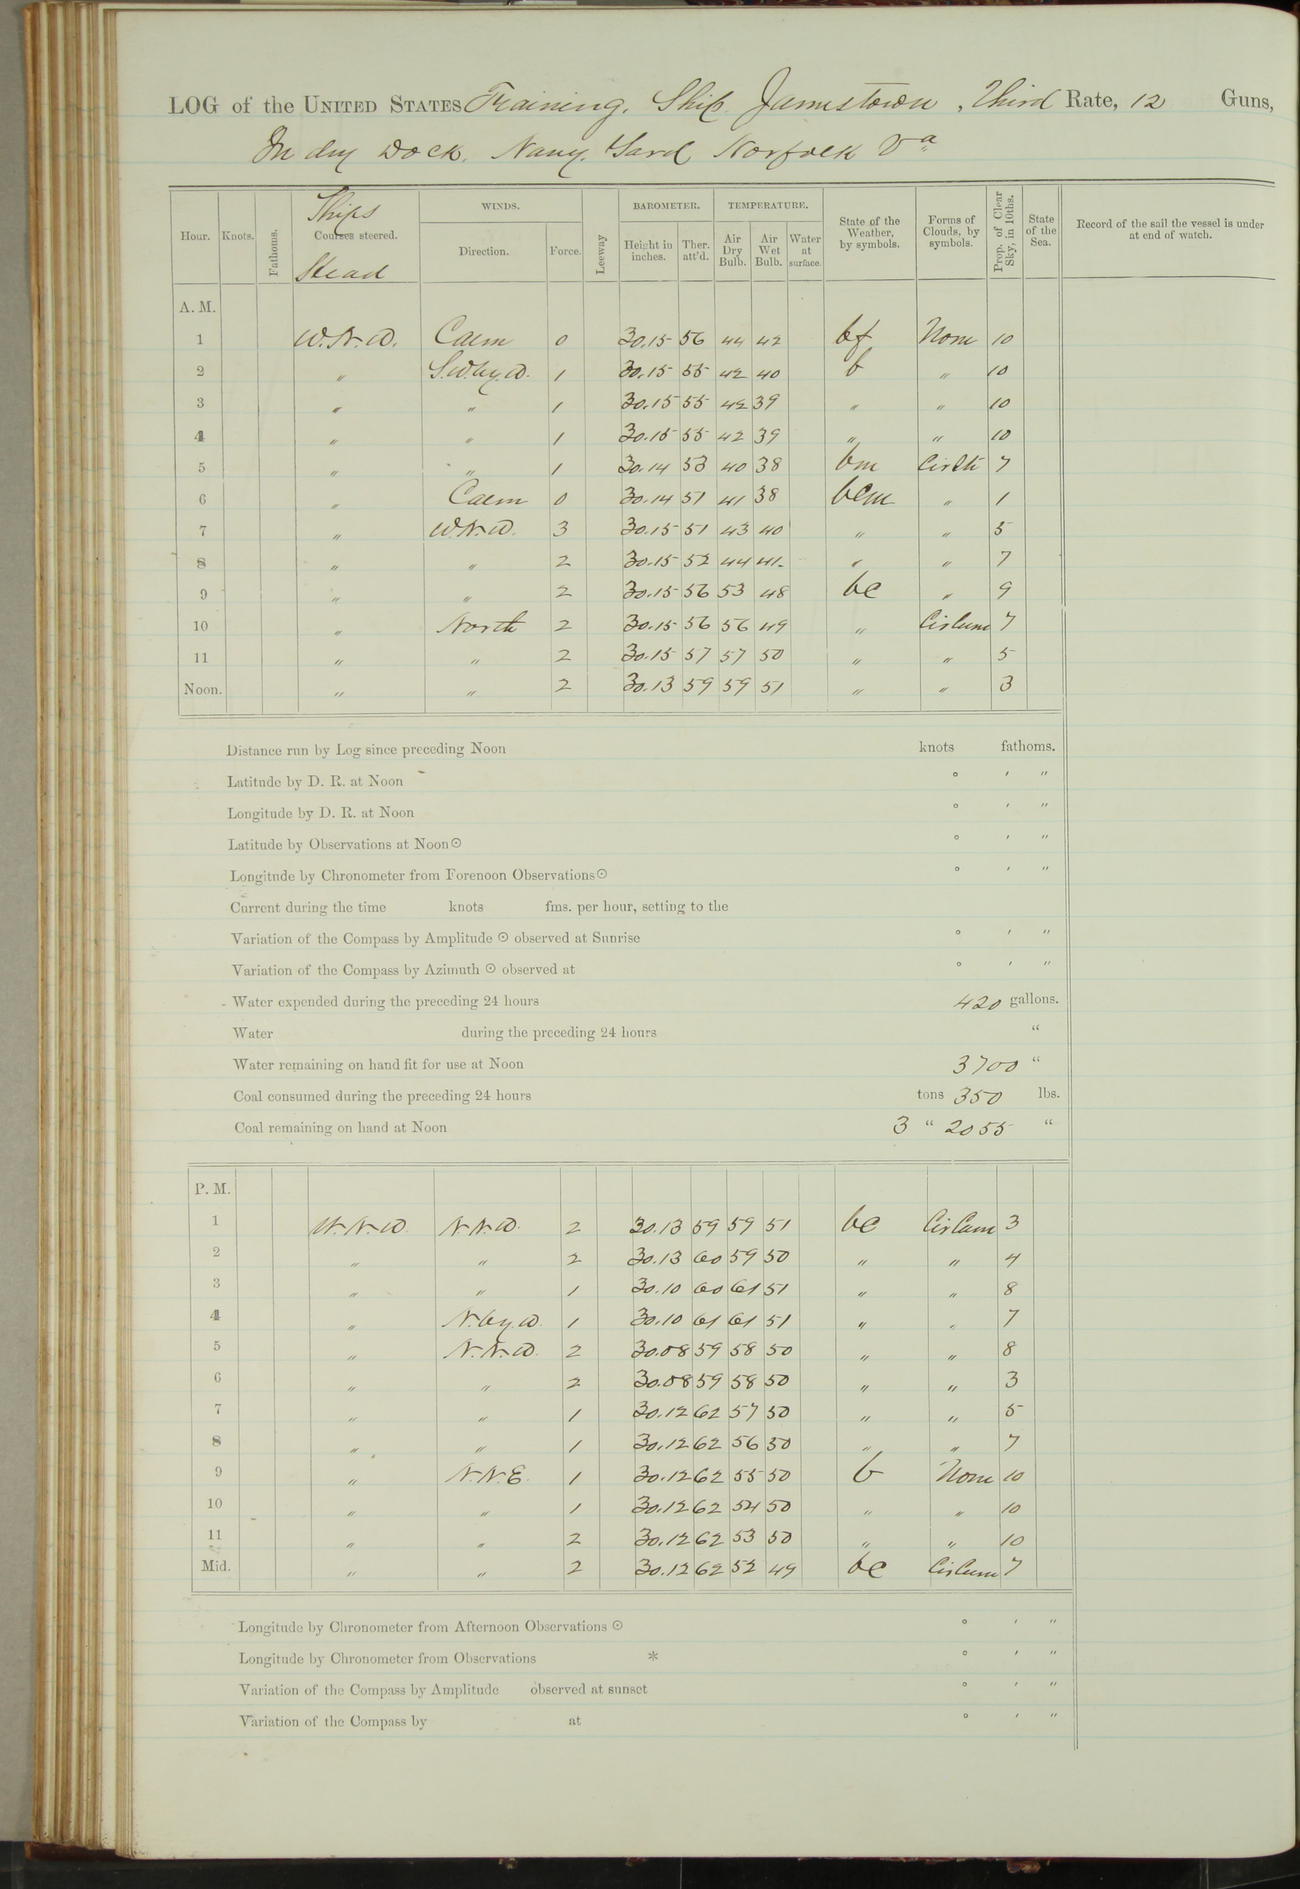 LOG of the UNITED STATES Training Ship Jamestown, Third Rate, 12 Guns,
In dry Dock. Navy Yard Norfolk Va
Hour. Knots. Fathoms. Ships Courses steered. Head WINDS. Direction. Force. Leeway BAROMETER. Height in inches. Ther. att'd. TEMPERATURE. Air Dry Bulb. Air Wet Bulb. Water at surface. State of the Weather, by symbols. Forms of Clouds, by symbols. Prop. of Clear Sky, in 10ths. State of the Sea. Record of the sail the vessel is under at end of watch.
A. M.
1 W.N.W. Calm 0 30.15 56 44 42 bf None 10
2 " S.W.by.W. 1 30.15 55 42 40 b " 10
3 " " 1 30.15 55 42 39 " " 10
4 " " 1 30.15 55 42 39 " " 10
5 " " 1 30.14 53 40 38 bm Cir Str 7
6 " Calm 0 30.14 51 41 38 bcm " 1
7 " W.N.W. 3 30.15 51 43 40 " " 5
8 " " 2 30.15 52 44 41 " " 7
9 " " 2 30.15 56 53 48 bc " 9
10 " North 2 30.15 56 56 49 " Cir Cum 7
11 " " 2 30.15 57 57 50 " " 5
Noon. " " 2 30.13 59 59 51 " " 3
Distance run by Log since preceding Noon knots fathoms.
Latitude by D. R. at Noon ° ′ ″
Longitude by D. R. at Noon ° ′ ″
Latitude by Observations at Noon ☉ ° ′ ″
Longitude by Chronometer from Forenoon Observations ☉ ° ′ ″
Current during the time knots fms. per hour, setting to the
Variation of the Compass by Amplitude ☉ observed at Sunrise ° ′ ″
Variation of the Compass by Azimuth ☉ observed at ° ′ ″
Water expended during the preceding 24 hours 420 gallons.
Water during the preceding 24 hours "
Water remaining on hand fit for use at Noon 3700 "
Coal consumed during the preceding 24 hours tons 350 lbs.
Coal remaining on hand at Noon 3 " 2055 "
P. M.
1 W.N.W N.N.W. 2 30.13 59 59 51 bc Cir Cum 3
2 " " 2 30.13 60 59 50 " " 4
3 " " 1 30.10 60 61 51 " " 8
4 " N.by.W. 1 30.10 61 61 51 " " 7
5 " N.N.W. 2 30.08 59 58 50 " " 8
6 " " 2 30.08 59 58 50 " " 3
7 " " 1 30.12 62 57 50 " " 5
8 " " 1 30.12 62 56 50 " " 7
9 " N.N.E. 1 30.12 62 55 50 b None 10
10 " " 1 30.12 62 54 50 " " 10
11 " " 2 30.12 62 53 50 " " 10
Mid. " " 2 30.12 62 52 49 bc Cir Cum 7
Longitude by Chronometer from Afternoon Observations ☉ ° ′ ″
Longitude by Chronometer from Observations * ° ′ ″
Variation of the Compass by Amplitude observed at sunset ° ′ ″
Variation of the Compass by at ° ′ ″